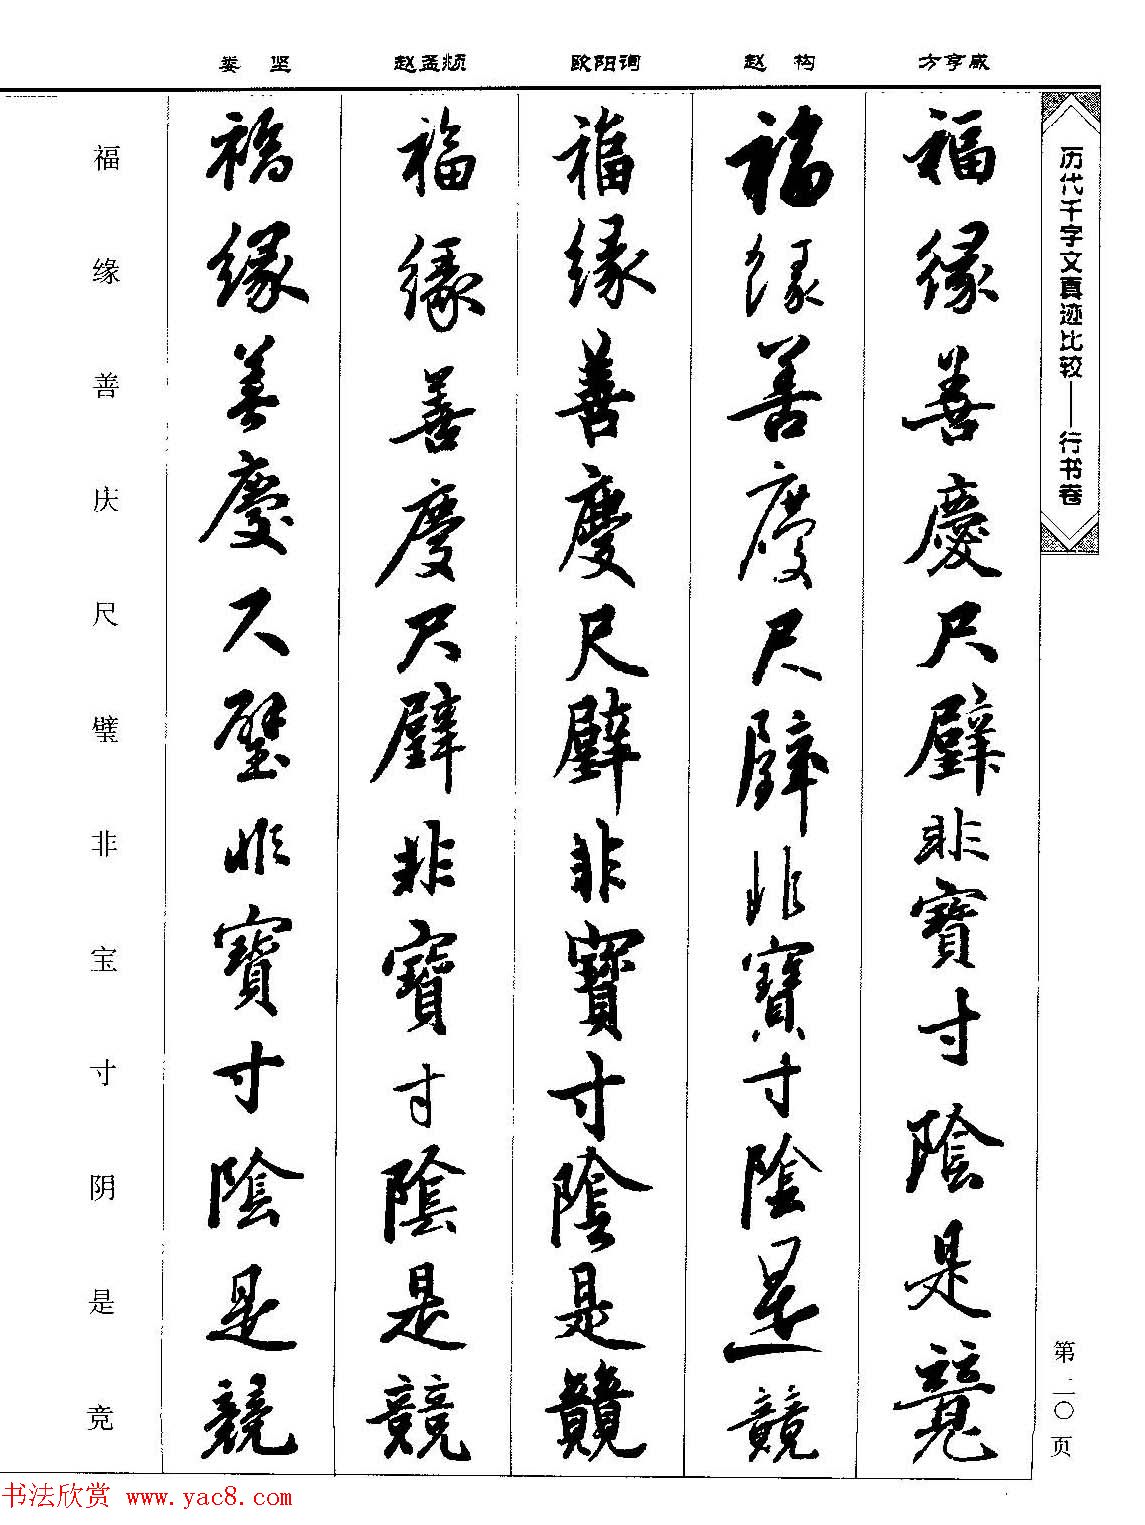 历代千字文真迹比较——行书卷
第二〇页
方亨咸
福緣善慶尺璧非寶寸陰是競
赵构
福緣善慶尺璧非寶寸陰是競
欧阳询
福緣善慶尺璧非寶寸陰是競
赵孟頫
福緣善慶尺璧非寶寸陰是競
娄坚
福緣善慶尺璧非寶寸陰是競
福缘善庆尺璧非宝寸阴是竞
书法欣赏 www.yac8.com